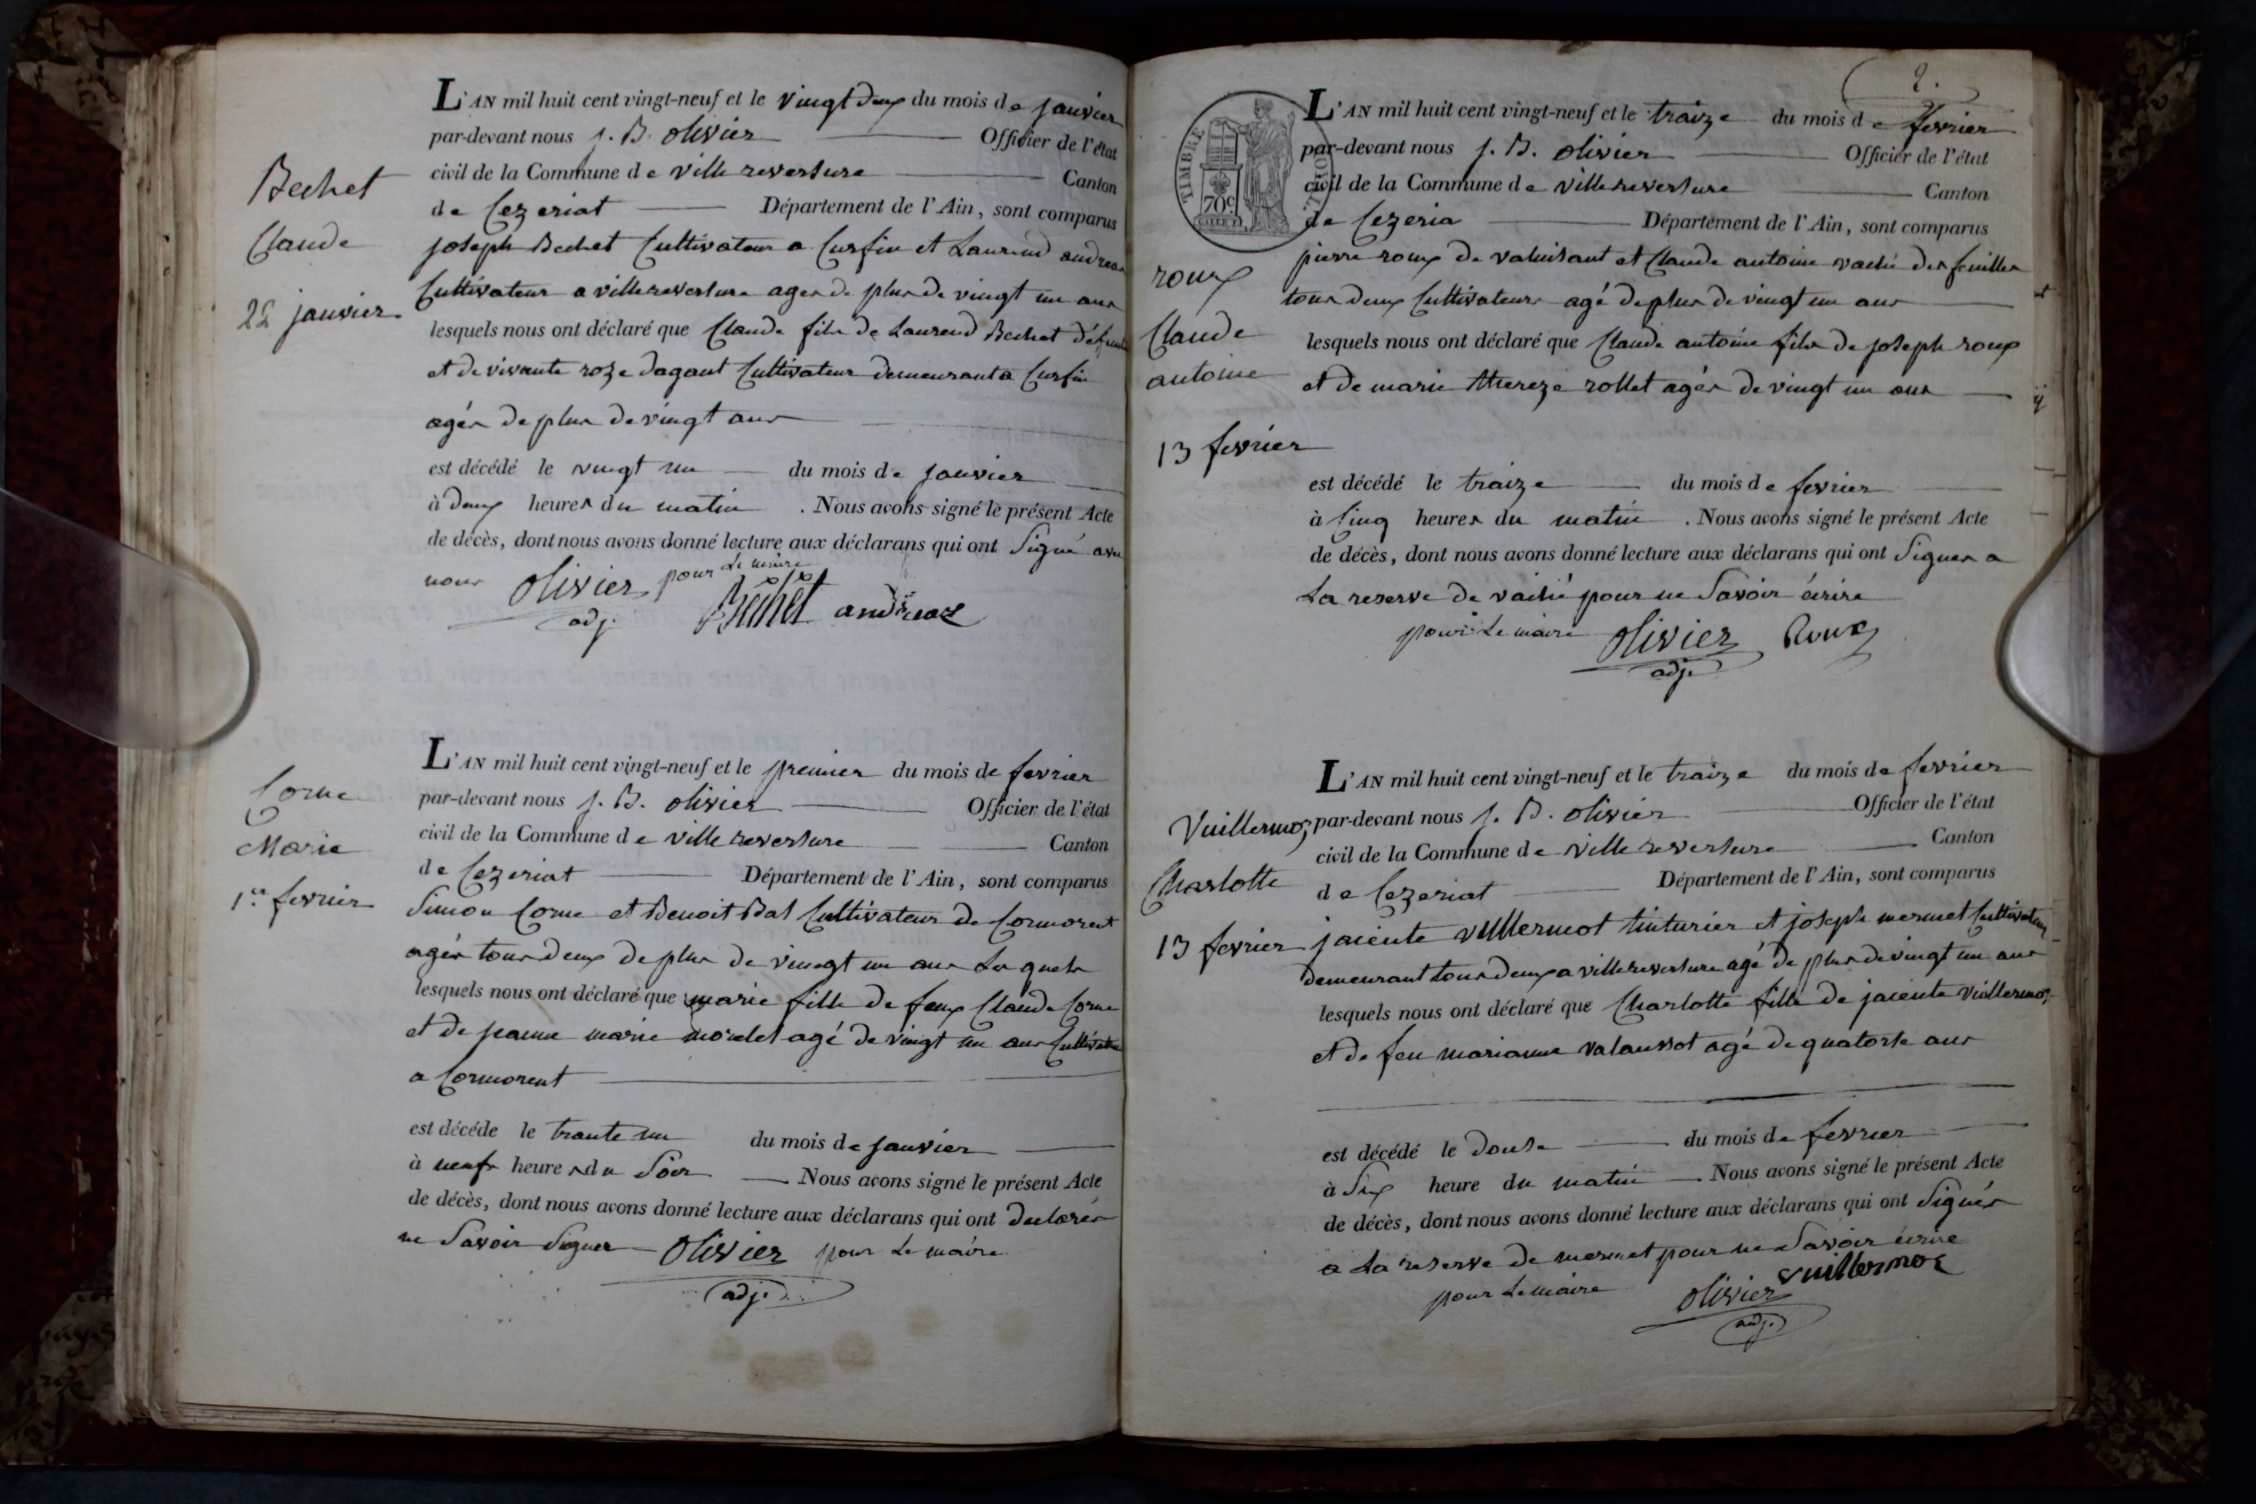 L'AN mil huit cent vingt-neuf et le vingt deux du mois de janvier
par-devant nous j. B. olivier Officier de l'état
civil de la Commune de ville reversure Canton
de Cezeriat Département de l'Ain, sont comparus
joseph Bechet Cultivateur a Cursin et Laurend andreas
Cultivateur a villereversure ages de plus de vingt un ans
lesquels nous ont déclaré que Claude fils de Laurend Bechet
et de vivante roze dagaut Cultivateur demeurant a Cursin
agés de plus de vingt ans
est décédé le vingt un du mois de janvier
à deux heures du matin . Nous avons signé le présent Acte
de décès, dont nous avons donné lecture aux déclarans qui ont Signé avec
nous olivier pour Le maire
adj. Bechet andreas
Bechet
Claude
22 janvier
L'AN mil huit cent vingt-neuf et le premier du mois de fevrier
par-devant nous j. B. olivier Officier de l'état
civil de la Commune de ville reversure Canton
de Cezeriat Département de l'Ain, sont comparus
Simon Corne et Benoit Bal Cultivateur de Cormorent
agés tous deux de plus de vingt un ans Les quels
lesquels nous ont déclaré que marie fille de feux Claude Corne
et de jeanne marie morelet agé de vingt un ans Cultivatr
a Cormorent
est décédé le trante un du mois de janvier
à neufs heures du Soir Nous avons signé le présent Acte
de décès, dont nous avons donné lecture aux déclarans qui ont declarés
ne Savoir Signer olivier pour Le maire
adj.
Corne
Marie
1er fevrier
2.
TIMBRE ROYAL
70c
L'AN mil huit cent vingt-neuf et le traize du mois de fevrier
par-devant nous j. B. olivier Officier de l'état
civil de la Commune de villereversure Canton
de Cezeria Département de l'Ain, sont comparus
pierre roux de valuisant et Claude antoine vaché des feuilles
tous deux Cultivateurs agé de plus de vingt un ans
lesquels nous ont déclaré que Claude antoine fils de joseph roux
et de marie thereze rollet agés de vingt un ans
est décédé le traize du mois de fevrier
à Cinq heures du matin . Nous avons signé le présent Acte
de décès, dont nous avons donné lecture aux déclarans qui ont Signer a
La reserve de vaché pour ne Savoir écrire
pour Le maire olivier Roux
adj.
roux
Claude
antoine
13 fevrier
L'AN mil huit cent vingt-neuf et le traize du mois de fevrier
par-devant nous j. B. olivier Officier de l'état
civil de la Commune de ville reversure Canton
de Cezeriat Département de l'Ain, sont comparus
jaciente vuillermot tinturier et joseph mermet Cultivateur
demeurant tous deux a villereversure agé de plus de vingt un ans
lesquels nous ont déclaré que Charlotte fille de jaciente Vuillermoz
et de feu marianne valaussot agé de quatorse ans
est décédé le douse du mois de fevrier
à Six heure du matin Nous avons signé le présent Acte
de décès, dont nous avons donné lecture aux déclarans qui ont Signés
a La reserve de mermet pour ne Savoir écrire
pour Le maire olivier vuillermoz
adj.
Vuillermoz
Charlotte
13 fevrier